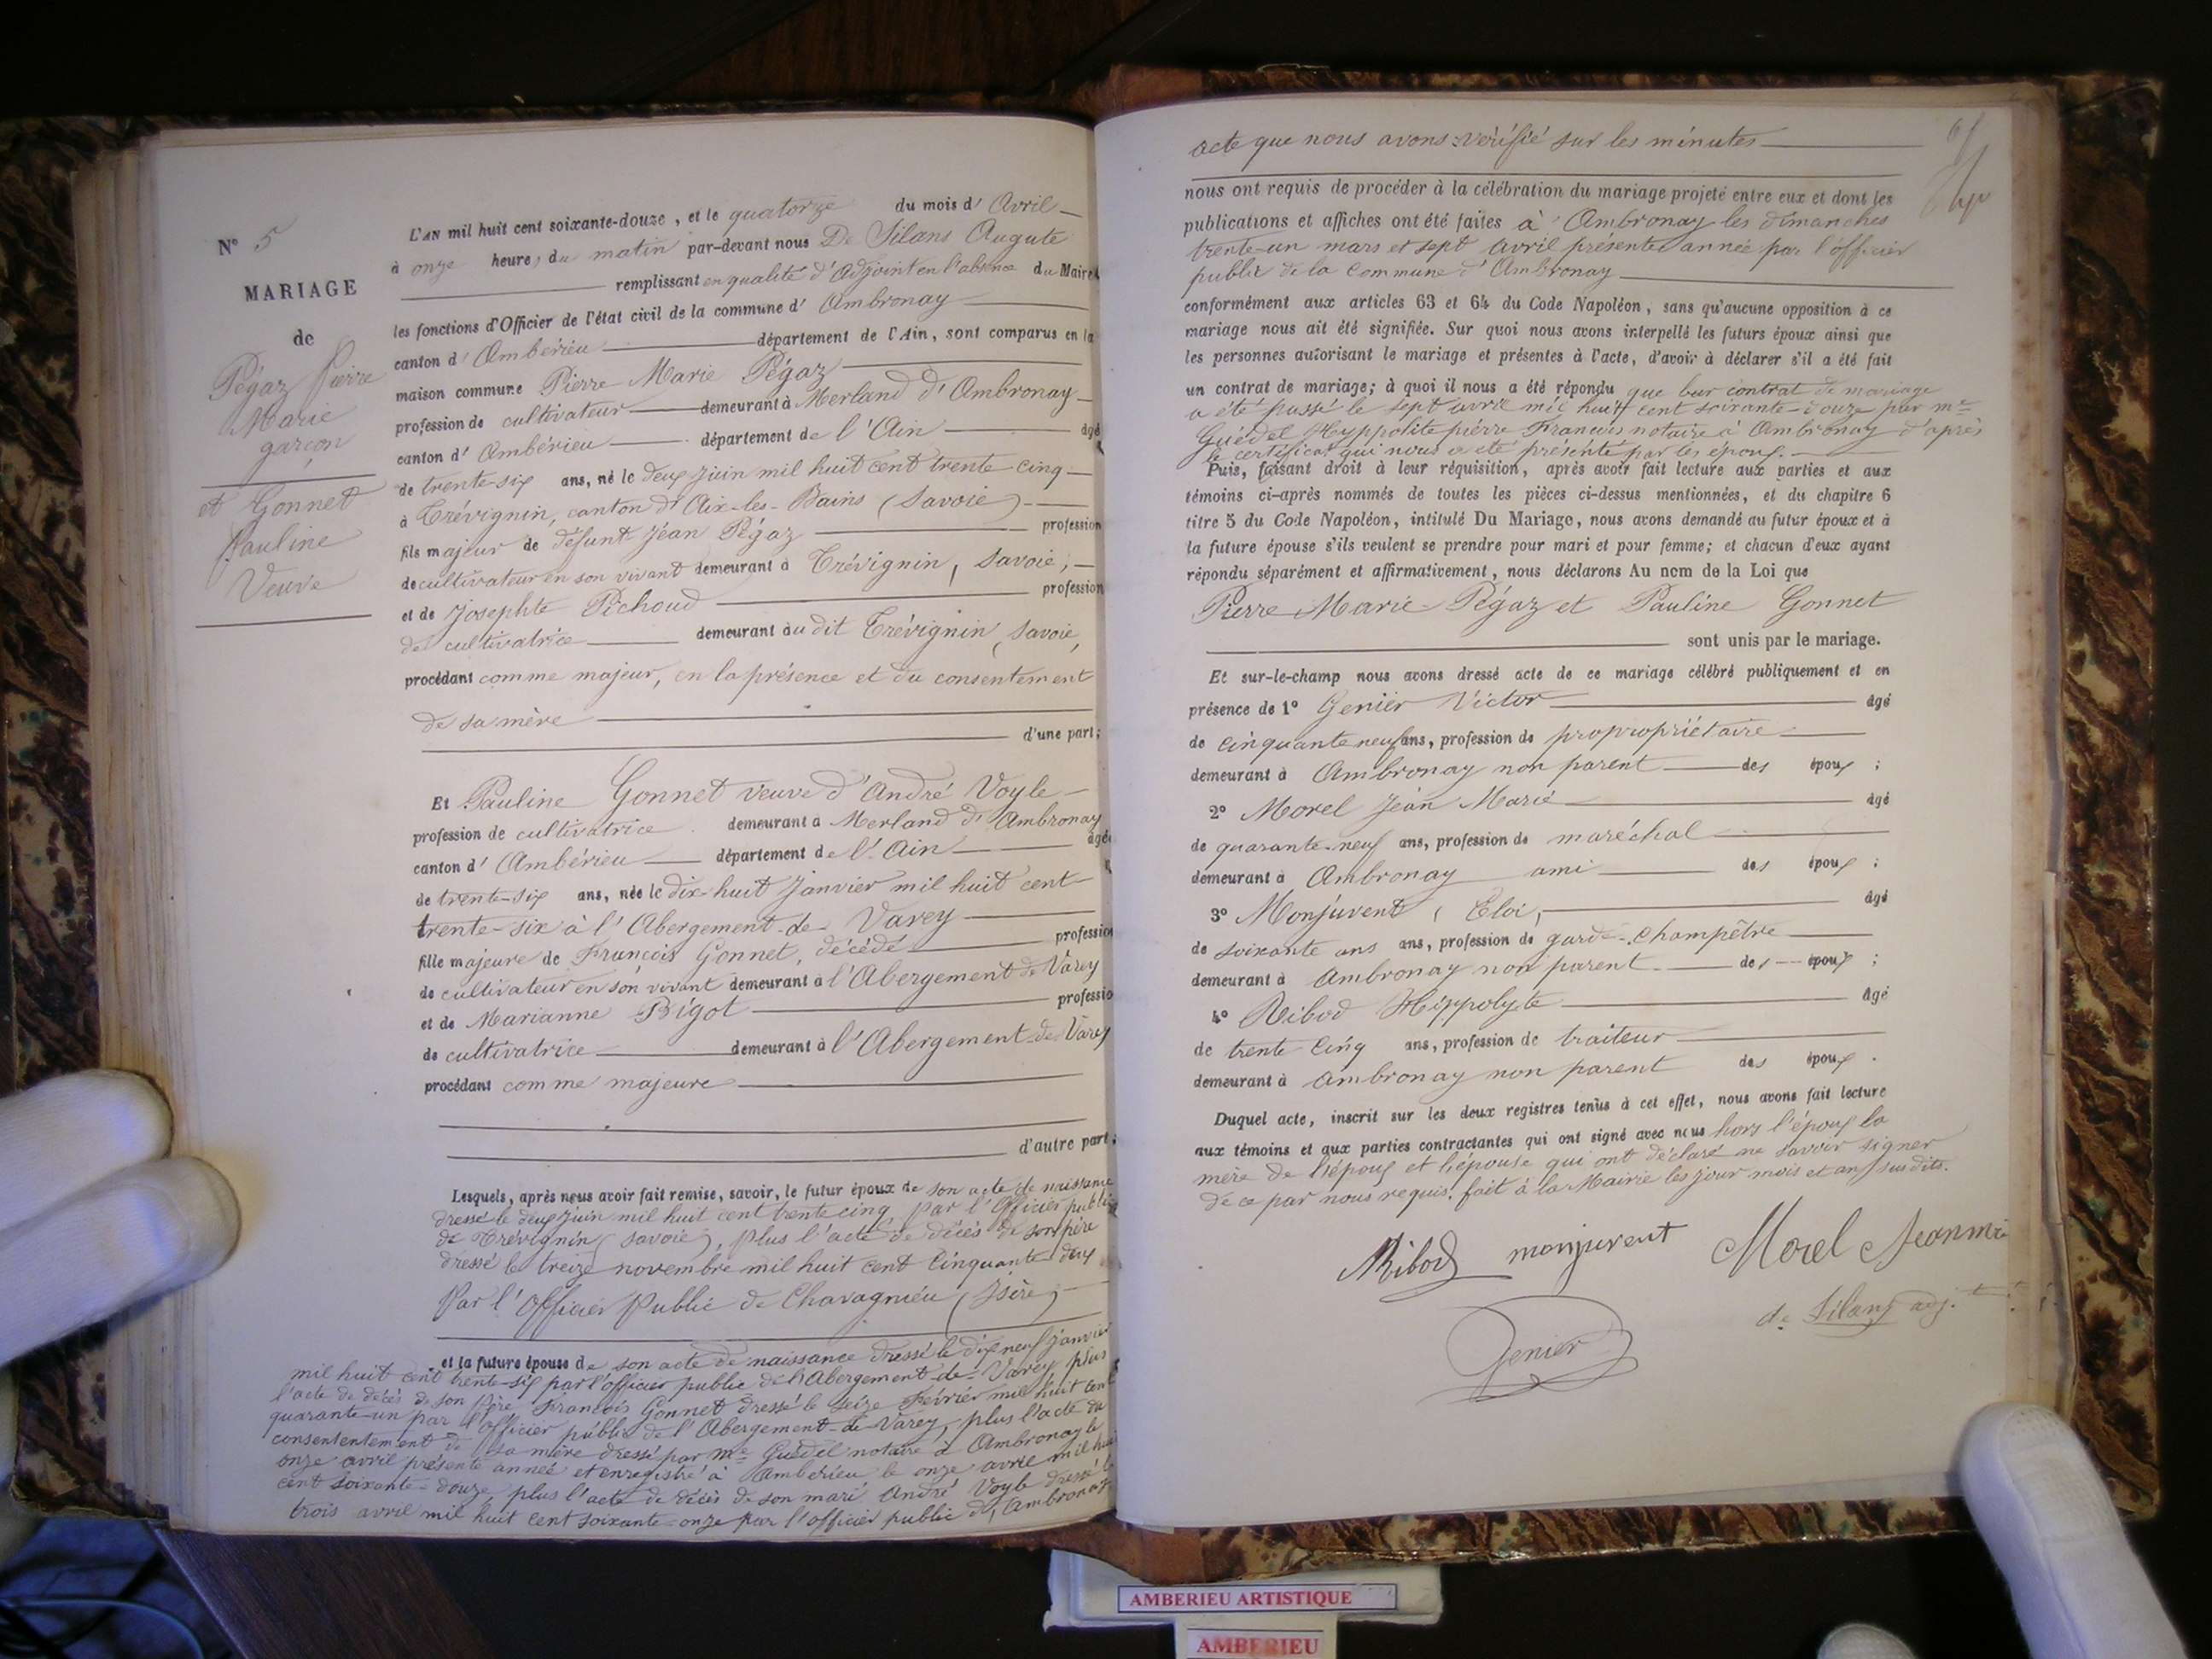 N° 5
MARIAGE
de
Pégaz Pierre
Marie
garçon
et Gonnet
Pauline
Veuve
L'AN mil huit cent soixante-douze, et le quatorze du mois d' Avril
à onze heures du matin par-devant nous De Silans Augute
remplissant en qualité d'Adjoint en l'absence du Maire
les fonctions d'Officier de l'état civil de la commune d' Ambronay
canton d' Ambérieu département de l'Ain, sont comparus en la
maison commune Pierre Marie Pégaz
profession de cultivateur demeurant à Merland d'Ambronay
canton d' Ambérieu département de l'Ain âgé
de trente-six ans, né le deux juin mil huit cent trente cinq
à Trévignin, canton d'Aix-les-Bains (Savoie)
fils majeur de défunt Jéan Pégaz profession
de cultivateur en son vivant demeurant à Trévignin, Savoie,
et de Josephte Pichoud profession
de cultivatrice demeurant au dit Trévignin, Savoie,
procédant comme majeur, en la présence et du consentement
de sa mère
d'une part;
Et Pauline Gonnet veuve d'André Voyle
profession de cultivatrice demeurant à Merland d'Ambronay
canton d' Ambérieu département de l'Ain âgée
de trente-six ans, née le dix-huit Janvier mil huit cent
trente-six à l'Abergement-de-Varey
fille majeure de François Gonnet, décédé profession
de cultivateur en son vivant demeurant à l'Abergement de Varey
et de Marianne Bigot professio
de cultivatrice demeurant à l'Abergement-de-Varey
procédant comme majeure
d'autre part;
Lesquels, après nous avoir fait remise, savoir, le futur époux de son acte de naissance
dressé le deux juin mil huit cent trente cinq par l'Officier public
de Trévignin (Savoie), plus l'acte de décès de son père
dressé le treize novembre mil huit cent cinquante deux
Par l'Officier Public de Chavagnieu (Isère)
et la future épouse de son acte de naissance dressé le dix neuf janvier
mil huit cent trente-six par l'officier public de l'Abergement-de-Varey plus
l'acte de décès de son père François Gonnet dressé le seize Février mil huit cent
quarante-un par l'officier public de l'Abergement-de-Varey, plus l'acte du
consententement de sa mère dressé par me Guédel notaire à Ambronay le
onze avril présente année et enregistré à Ambérieu le onze avril mil huit
cent soixante-douze, plus l'acte de décès de son mari André Voyle dressé le
trois avril mil huit cent soixante-onze par l'officier public d'Ambronay
acte que nous avons vérifié sur les minutes
nous ont requis de procéder à la célébration du mariage projeté entre eux et dont les
publications et affiches ont été faites à Ambronay les dimanches
trente-un mars et sept avril présente année par l'officier
public de la Commune d'Ambronay
conformément aux articles 63 et 64 du Code Napoléon, sans qu'aucune opposition à ce
mariage nous ait été signifiée. Sur quoi nous avons interpellé les futurs époux ainsi que
les personnes autorisant le mariage et présentes à l'acte, d'avoir à déclarer s'il a été fait
un contrat de mariage; à quoi il nous a été répondu que leur contrat de mariage
a été passé le sept avril mil huit cent soixante-douze par me
Guédel Hyppolite pierre François notaire à Ambronay d'après
le certificat qui nous a été présenté par les époux.
Puis, faisant droit à leur réquisition, après avoir fait lecture aux parties et aux
témoins ci-après nommés de toutes les pièces ci-dessus mentionnées, et du chapitre 6
titre 5 du Code Napoléon, intitulé Du Mariage, nous avons demandé au futur époux et à
la future épouse s'ils veulent se prendre pour mari et pour femme; et chacun d'eux ayant
répondu séparément et affirmativement, nous déclarons Au nom de la Loi que
Pierre Marie Pégaz et Pauline Gonnet
sont unis par le mariage.
Et sur-le-champ nous avons dressé acte de ce mariage célébré publiquement et en
présence de 1° Genier Victor âgé
de cinquante neuf ans, profession de propropriétaire
demeurant à Ambronay non parent des époux ;
2° Morel Jean Marie âgé
de quarante-neuf ans, profession de maréchal
demeurant à Ambronay ami des époux ;
3° Monjuvent, Eloi, âgé
de soixante ans ans, profession de garde-champêtre
demeurant à Ambronay non parent des époux ;
4° Ribod Hippolyte âgé
de trente cinq ans, profession de traiteur
demeurant à Ambronay non parent des époux .
Duquel acte, inscrit sur les deux registres tenus à cet effet, nous avons fait lecture
aux témoins et aux parties contractantes qui ont signé avec nous hors l'époux la
mère de l'époux et l'épouse qui ont déclaré ne savoir signer
de ce par nous requis. fait à la Mairie les jour mois et an susdits.
Ribod monjuvent Morel Jeanmie
de Silans adj.t
Genier
AMBERIEU ARTISTIQUE
AMBERIEU